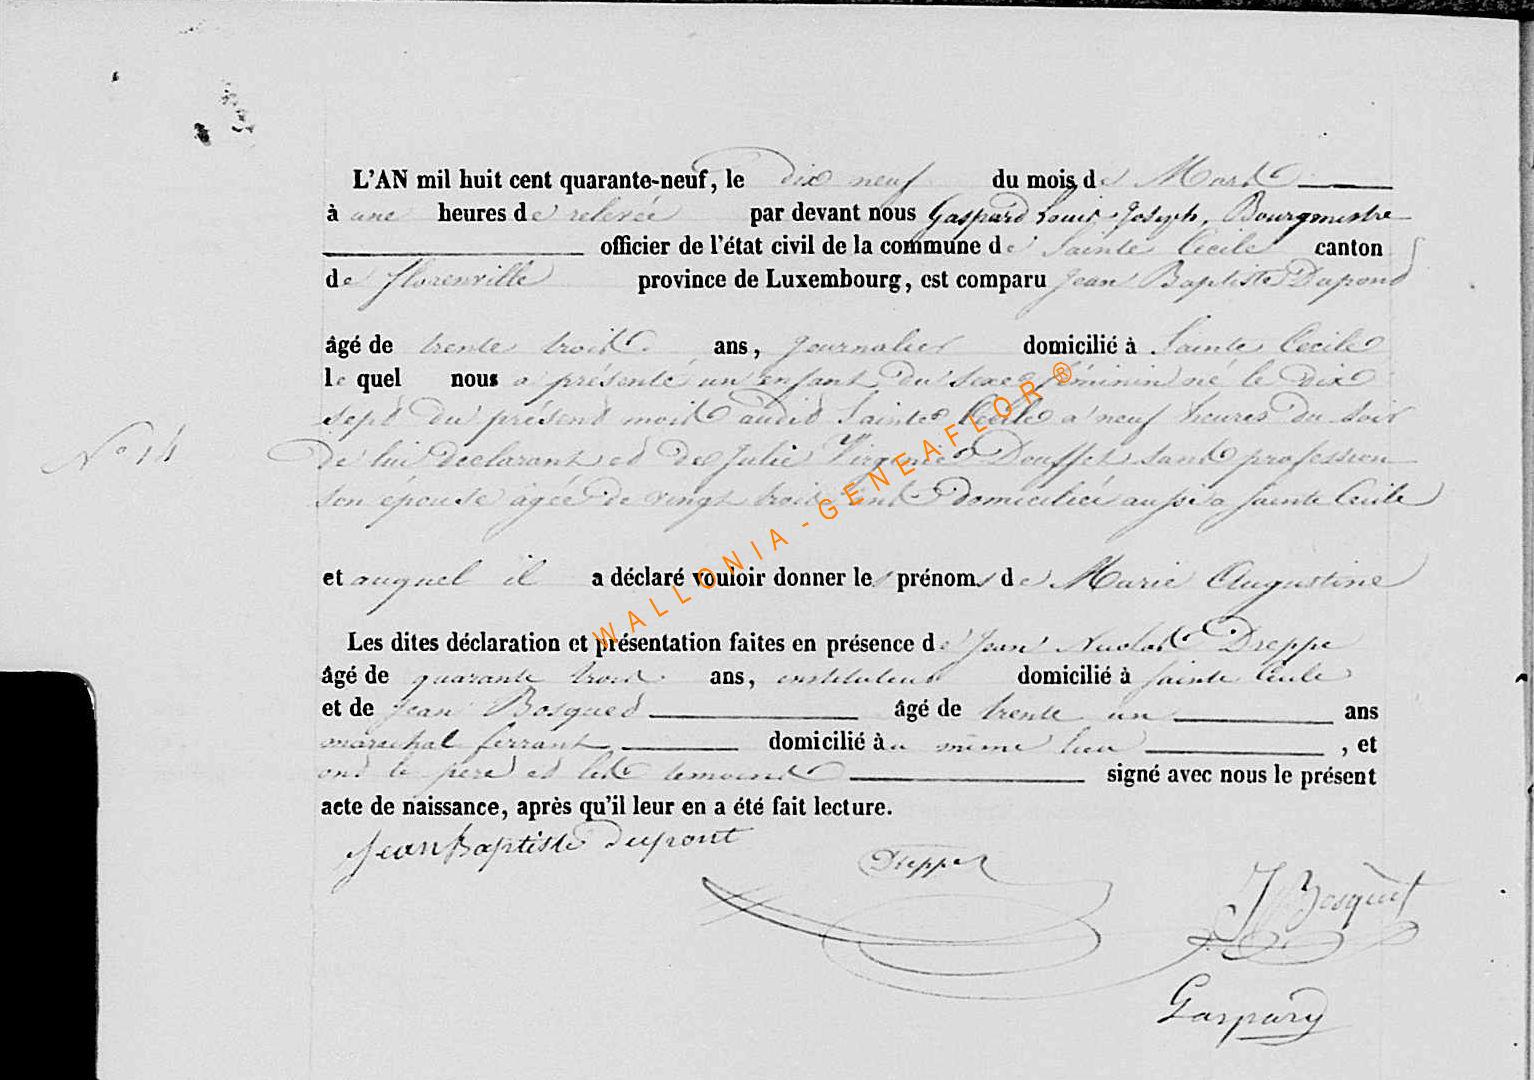 L'AN mil huit cent quarante-neuf, le dix neuf du mois de Mars
à une heures de relevée par devant nous Gaspard Louis Joseph, Bourgmestre
officier de l'état civil de la commune de Sainte Cécile canton
de Florenville province de Luxembourg, est comparu Jean Baptiste Dupond
âgé de trente trois ans, journalier domicilié à Sainte Cecile
le quel nous a présenté un enfant du sexe féminin né le dix
sept du présent mois audit Sainte Cécile a neuf heures du soir
N° 14
de lui declarant et de Julie Virginie Douffet sans profession
son épouse agée de vingt trois ans domiciliée aussi a Sainte Cecile
et auquel il a déclaré vouloir donner les prénoms de Marie Augustine
Les dites déclaration et présentation faites en présence de Jean Nicolas Dreppe
âgé de quarante trois ans, instituteur domicilié à Sainte Cecile
et de Jean Bosqued âgé de trente un ans
maréchal ferrant domicilié à au même lieu, et
ont le père et les temoins signé avec nous le présent
acte de naissance, après qu'il leur en a été fait lecture.
Jean Baptiste dupont
Dreppe
J Bosquet
Gaspard
WALLONIA-GENEAFLOR®